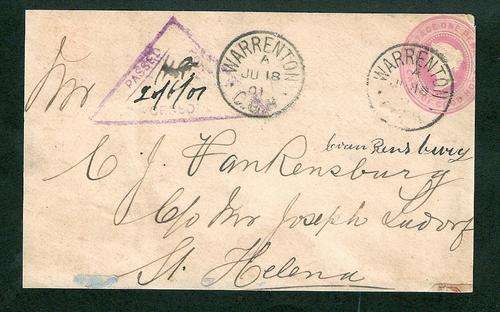 PASSED
20/6/01
WARRENTON
A
JU 18
01
WARRENTON
A
JU 18
Mr
C J Vankensburg
van Rensburg
C/o Mr Joseph Ludorf
St. Helena